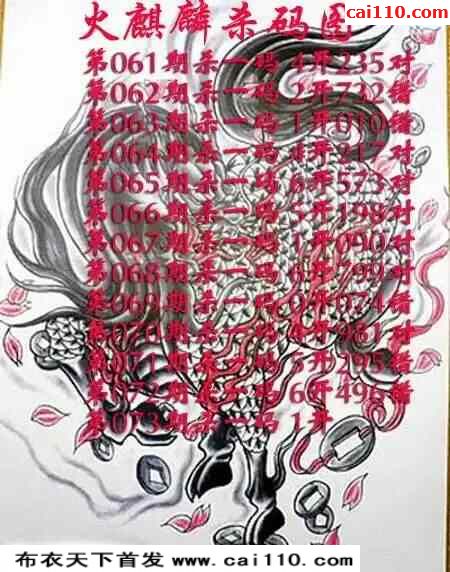 cai110.com
火麒麟杀码图
第061期杀一码 4开235对
第062期杀一码 2开732错
第063期杀一码 1开010错
第064期杀一码 4开217对
第065期杀一码 6开573对
第066期杀一码 5开198对
第067期杀一码 1开090对
第068期杀一码 6开799对
第069期杀一码 0开074错
第070期杀一码 开981对
第071期杀一码 5开295错
第072期杀一码 6开496错
第073期杀一码 1开
布衣天下首发 www.cai110.com